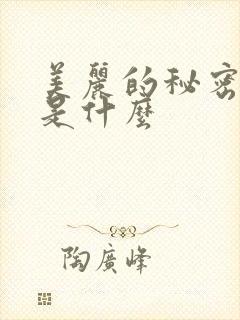 美麗的秘密
是什麼
陶廣峰